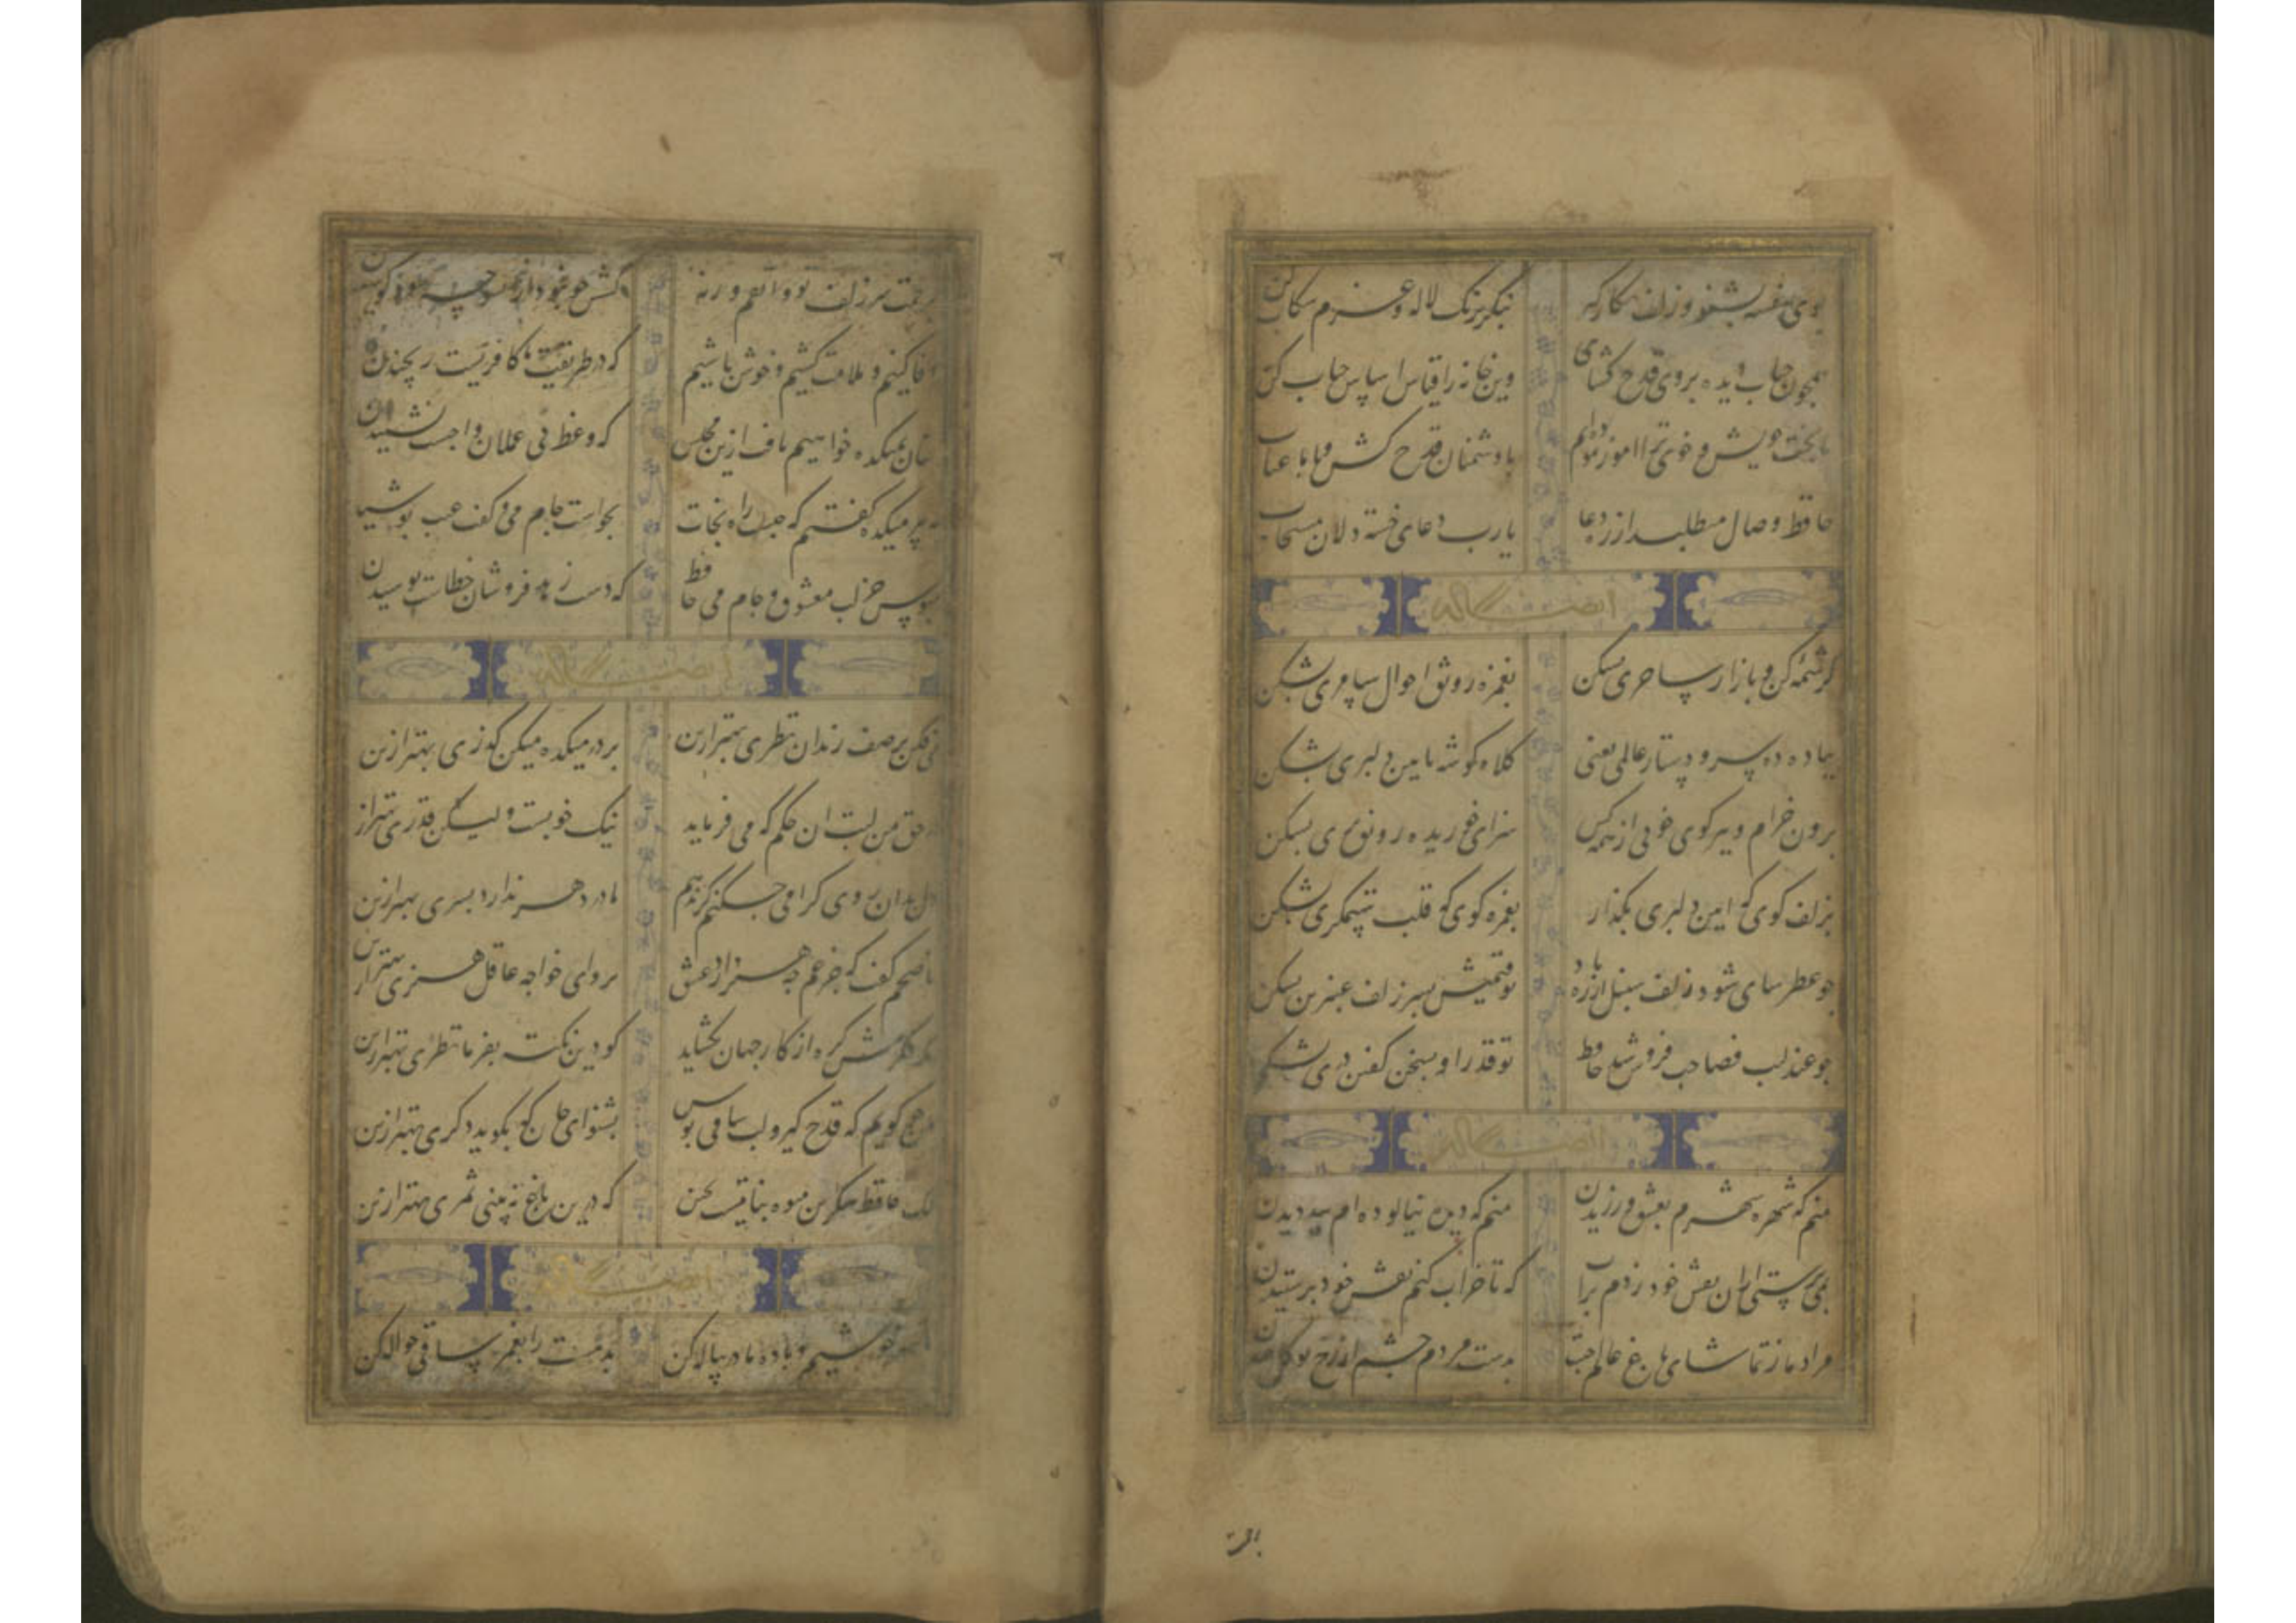 بوی بنفشه بشنو و زلف نگار گیر
بنگر برنگ لاله و عزم شراب کن
همچون حباب دیده بروی قدح گشای
وین خانه را قیاس اساس از حباب کن
با دشمنان قدح کش و با ما عتاب
حافظ وصال می‌طلبد از ره دعا
یارب دعای خسته دلان مستجاب
ایضا له
کرشمه کن و بازار ساحری بشکن
بغمزه رونق احوال سامری بشکن
بباد ده سر و دستار عالمی یعنی
کلاه گوشه بایین دلبری بشکن
برون خرام و ببر گوی خوبی از همه کس
سزای حور بده رونق پری بشکن
بزلف گوی که آیین دلبری بگذار
بغمزه گوی که قلب ستمگری بشکن
چو عطرسای شود زلف سنبل از دم باد
تو قیمتش بسر زلف عنبرین بشکن
چو عندلیب فصاحت فروش شد حافظ
تو قدر او بسخن گفتن دری بشکن
ایضا له
منم که شهره شهرم بعشق ورزیدن
منم که دیده نیالوده‌ام ببد دیدن
بمی پرستی از ان نقش خود زدم بر اب
که تا خراب کنم نقش خود پرستیدن
مراد ما ز تماشای باغ عالم چیست
بدست مردم چشم از رخ تو گل چیدن
سر زلف تو واثقم ورنه
کشش چو نبود از ان سو چه سود کوشیدن
وفا کنیم و ملامت کشیم و خوش باشیم
که در طریقت ما کافریست رنجیدن
عنان بمیکده خواهیم تافت ازین مجلس
که وعظ بی عملان واجبست نشنیدن
به پیر میکده گفتم که چیست راه نجات
بخواست جام می و گفت عیب پوشیدن
مبوس جز لب معشوق و جام می حافظ
که دست زهد فروشان خطاست بوسیدن
ایضا له
می فکن بر صف رندان نظری بهتر ازین
بر در میکده میکن گذری بهتر ازین
در حق من لبت ان حکم که می فرماید
نیک خوبست ولیکن قدری بهتر از
دل بدان رود گرامی چه کنم گر ندهم
مادر دهر ندارد پسری بهتر ازین
ناصحم گفت که جز غم چه هنر دارد عشق
برو ای خواجه عاقل هنری بهتر ازین
گره از کار جهان بگشاید
گو درین نکته بفرما نظری بهتر ازین
من چو گویم که قدح گیر و لب ساقی بوس
بشنو ای جان که نگوید دگری بهتر ازین
کلک حافظ شکرین میوه نباتیست بچین
که درین باغ نبینی ثمری بهتر ازین
ایضا له
باده در پیاله کن
بدمست را بغمزه ساقی حواله کن